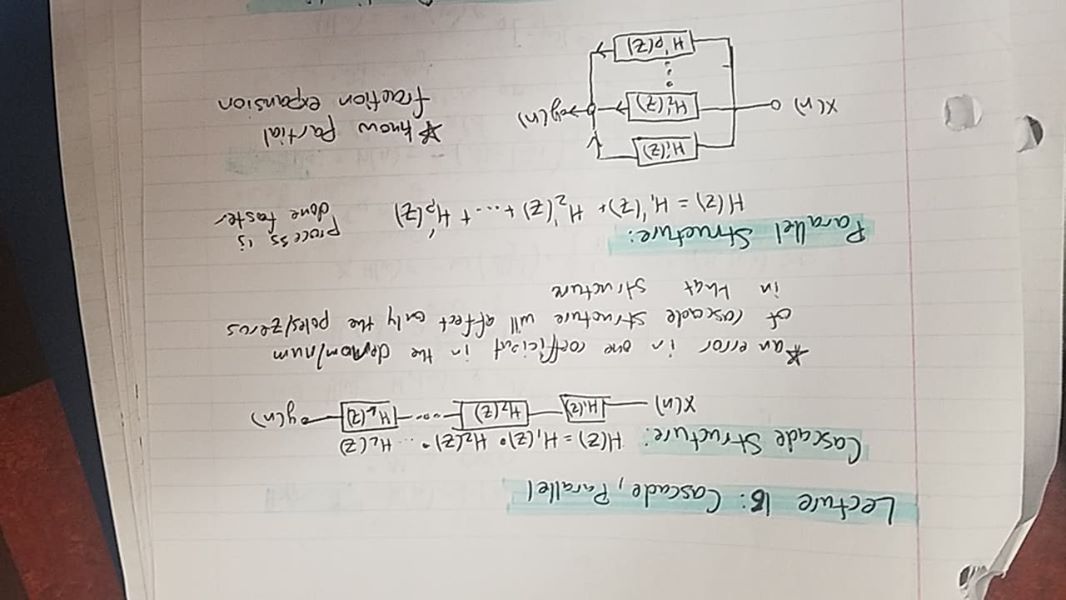 Lecture 18: Cascade, Parallel
Cascade Structure: H(z) = H₁(z)• H₂(z)• ... H_L(z)
x(n) H₁(z) H₂(z) ... H_L(z) y(n)
*an error in one coefficient in the denom/num
of cascade structure will affect only the poles/zeros
in that structure
Parallel Structure:
H(z) = H₁'(z) + H₂'(z) + ... + Hp'(z)
process is
done faster
*know Partial
fraction expansion
x(n) H₁'(z) H₂'(z) Hp'(z) y(n)